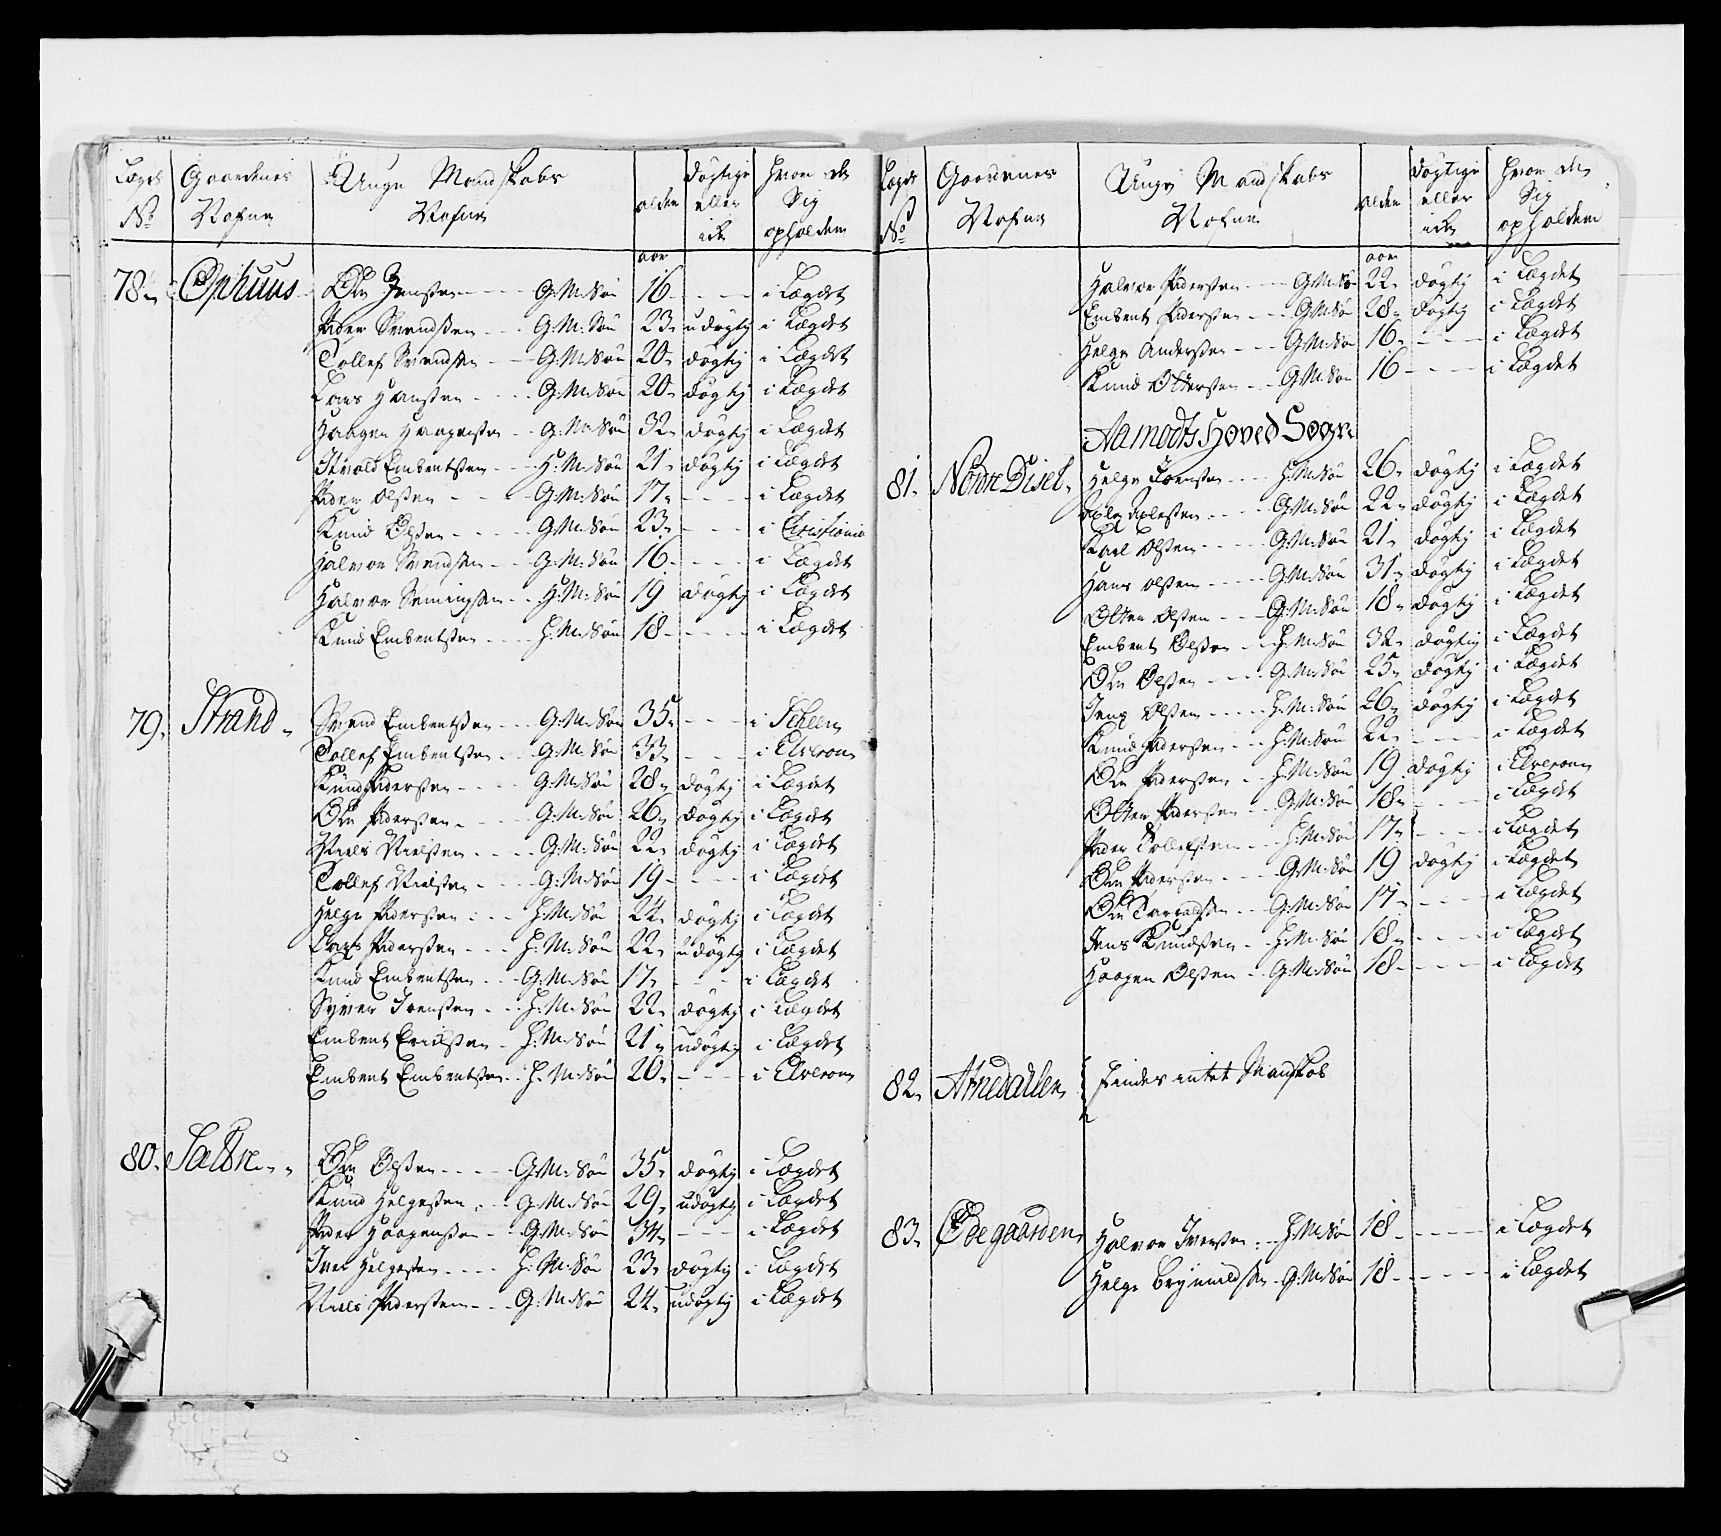 Lægds No Gaardenes Nafne Unge Mandskabs Nafne alder døgtige eller icke hvor de Sig opholder
aar
78. Ophuus Ole Jensen G: M: Søn 16 i Lægdet
Peder Svendsen G: M: Søn 23 udøgtig i Lægdet
Tollef Svendsen G: M: Søn 20 døgtig i Lægdet
Lars Hansen G: M: Søn 20 døgtig i Lægdet
Haagen Haagensen G: M: Søn 32 døgtig i Lægdet
Embretsen H: M: Søn 21 døgtig i Lægdet
Peder Olsen G: M: Søn 17 i Lægdet
Knud Olsen G: M: Søn 23 i Christiania
Halvor Svendsen G: M: Søn 16 i Lægdet
Halvor Semingsen H: M: Søn 19 døgtig i Lægdet
Knud Embretsen H: M: Søn 18 i Lægdet
79. Strand Svend Embretsen G: M: Søn 35 i Scheen
Tollef Embretsen G: M: Søn 33 i Elverom
Knud Pedersen G: M: Søn 28 døgtig i Lægdet
Ole Pedersen G: M: Søn 26 døgtig i Lægdet
Niels Nielsen G: M: Søn 22 døgtig i Lægdet
Tollef Nielsen G: M: Søn 19 i Lægdet
Helge Pedersen H: M: Søn 24 døgtig i Lægdet
Lars Pedersen H: M: Søn 22 udøgtig i Lægdet
Knud Embretsen G: M: Søn 17 i Lægdet
Syver Iversen H: M: Søn 22 døgtig i Lægdet
Embret Ericksen H: M: Søn 21 udøgtig i Lægdet
Embret Embretsen H: M: Søn 20 i Elverom
80. Sætre Ole Olsen G: M: Søn 35 døgtig i Lægdet
Knud Helgesen G: M: Søn 29 udøgtig i Lægdet
Peder Haagensen G: M: Søn 34 i Lægdet
Iver Helgesen H: M: Søn 23 døgtig i Lægdet
Niels Pedersen G: M: Søn 24 udøgtig i Lægdet
Lægds No Gaardenes Nafne Unge Mandskabs Nafne alder døgtige eller icke hvor de Sig opholder
aar
Halvor Pedersen G: M: Søn 22 døgtig i Lægdet
Embret Pedersen G: M: Søn 28 døgtig i Lægdet
Helge Andersen G: M: Søn 16 i Lægdet
Knud Ottersen G: M: Søn 16 i Lægdet
Aamodts Hoved Sogn
81. Nordre Diset Helge Joensen H: M: Søn 26 døgtig i Lægdet
G: M: Søn 22 døgtig i Lægdet
Karl Olsen G: M: Søn 21 døgtig i Lægdet
Hans Olsen G: M: Søn 31 døgtig i Lægdet
Otter Olsen G: M: Søn 18 døgtig i Lægdet
Embret Olsen H: M: Søn 32 døgtig i Lægdet
Ole Olsen G: M: Søn 25 døgtig i Lægdet
Olsen H: M: Søn 26 døgtig i Lægdet
Knud Pedersen H: M: Søn 22 i Lægdet
Ole Pedersen H: M: Søn 19 døgtig i Elverom
Otter Pedersen G: M: Søn 18 i Lægdet
Peder Tollefsen H: M: Søn 17 i Lægdet
Ole Pedersen G: M: Søn 19 døgtig i Lægdet
Ole G: M: Søn 17 i Lægdet
Jens Knudsen H: M: Søn 18 i Lægdet
Haagen Olsen G: M: Søn 18 i Lægdet
82. Arnedahlen findes intet Mandskab
83. Ødegaarden Halvor Iversen H: M: Søn 18 i Lægdet
Helge Brynnildsen G: M: Søn 18 i Lægdet